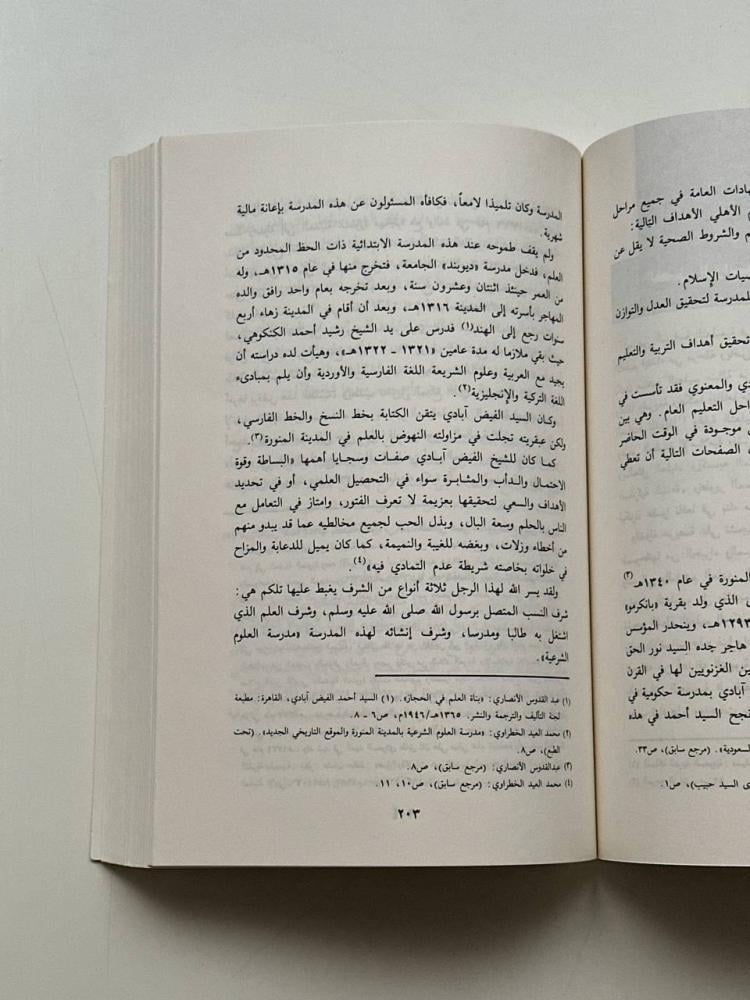 ـهادات العامة في جميع مراحل
الأهلي الأهداف التالية:
والشروط الصحية لا يقل عن
ـصيات الإسلام.
للمدرسة لتحقيق العدل والتوازن
تحقيق أهداف التربية والتعليم
ـدي والمعنوي فقد تأسست في
ـراحل التعليم العام. وهي بين
موجودة في الوقت الحاضر
الصفحات التالية أن تعطي
المنورة في عام ١٣٤٠هـ(٣)
الذي ولد بقرية «بانكرمو»
١٢٩٣هـ، وينحدر المؤسس
هاجر جده السيد نور الحق
ـين الغزنويين لها في القرن
آبادي بمدرسة حكومية في
نجح السيد أحمد في هذه
السعودية». (مرجع سابق)، ص٣٣.
السيد حبيب)، ص١.
المدرسة وكان تلميذا لامعاً، فكافأه المسئولون عن هذه المدرسة بإعانة مالية
شهرية.
ولم يقف طموحه عند هذه المدرسة الابتدائية ذات الحظ المحدود من
العلم، فدخل مدرسة «ديوبند» الجامعة، فتخرج منها في عام ١٣١٥هـ، وله
من العمر حينئذ اثنتان وعشرون سنة، وبعد تخرجه بعام واحد رافق والده
المهاجر بأسرته إلى المدينة ١٣١٦هـ، وبعد أن أقام في المدينة زهاء أربع
سنوات رجع إلى الهند(١) فدرس على يد الشيخ رشيد أحمد الكنكوهي،
حيث بقي ملازما له مدة عامين «١٣٢١ - ١٣٢٢هـ»، وهيأت له دراسته أن
يجيد مع العربية وعلوم الشريعة اللغة الفارسية والأوردية وأن يلم بمبادىء
اللغة التركية والإنجليزية(٢).
وكان السيد الفيض آبادي يتقن الكتابة بخط النسخ والخط الفارسي،
ولكن عبقريته تجلت في مزاولته النهوض بالعلم في المدينة المنورة(٣).
كما كان للشيخ الفيض آبادي صفات وسجايا أهمها «البساطة وقوة
الاحتمال والدأب والمثابرة سواء في التحصيل العلمي، أو في تحديد
الأهداف والسعي لتحقيقها بعزيمة لا تعرف الفتور، وامتاز في التعامل مع
الناس بالحلم وسعة البال، وبذل الحب لجميع مخالطيه عما قد يبدو منهم
من أخطاء وزلات، وبغضه للغيبة والنميمة، كما كان يميل للدعابة والمزاح
في خلواته بخاصته شريطة عدم التمادي فيه»(٤).
ولقد يسر الله لهذا الرجل ثلاثة أنواع من الشرف يغبط عليها تلكم هي:
شرف النسب المتصل برسول الله صلى الله عليه وسلم، وشرف العلم الذي
اشتغل به طالبا ومدرسا، وشرف إنشائه لهذه المدرسة «مدرسة العلوم
الشرعية».
(١) عبد القدوس الأنصاري: «بناة العلم في الحجاز». (١) السيد أحمد الفيض آبادي، القاهرة: مطبعة
لجنة التأليف والترجمة والنشر. ١٣٦٥هـ/١٩٤٦م، ص٦ - ٨.
(٢) محمد العيد الخطراوي: «مدرسة العلوم الشرعية بالمدينة المنورة والموقع التاريخي الجديد». (تحت
الطبع)، ص٨.
(٣) عبدالقدوس الأنصاري: (مرجع سابق)، ص٨.
(٤) محمد العيد الخطراوي: (مرجع سابق)، ص١٠، ١١.
٢٠٣